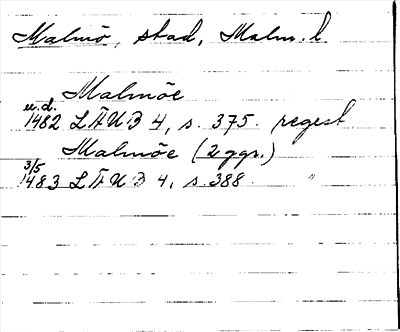 Malmö, stad, Malm. l
Malmöe
u.d.
1482 LÄUB 4, s. 375. regest
Malmöe (2 ggr.)
3/5
1483 LÄUB 4, s. 388. "